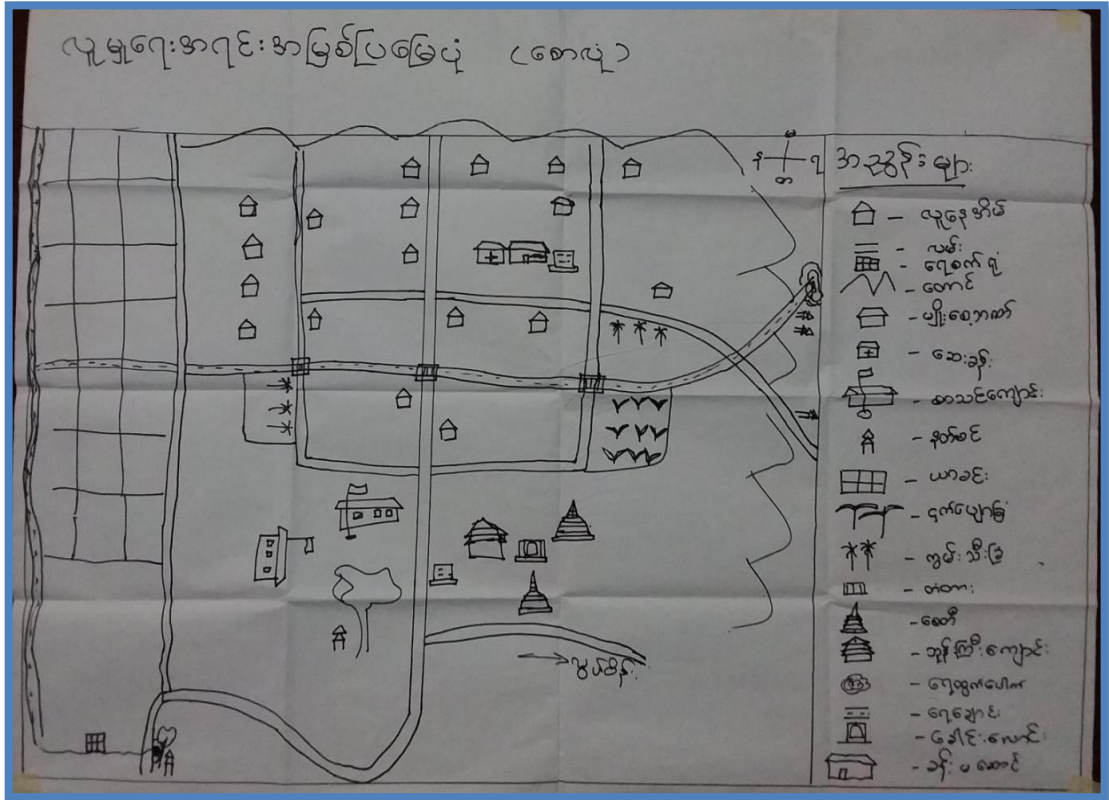 လူမှုရေးအရင်းအမြစ်ပြမြေပုံ (စောလုံ)
အညွှန်းများ
- လူနေအိမ်
- လမ်း
- ရေစက်ရုံ
- တောင်
- မျိုးစေ့ဘဏ်
- ဆေးခန်း
- စာသင်ကျောင်း
- နတ်စင်
- ယာခင်း
- ငှက်ပျောခြံ
- ကွမ်းသီးခြံ
- တံတား
- စေတီ
- ဘုန်းကြီးကျောင်း
- ရေထွက်ပေါက်
- ရေချောင်း
- ခေါင်းလောင်း